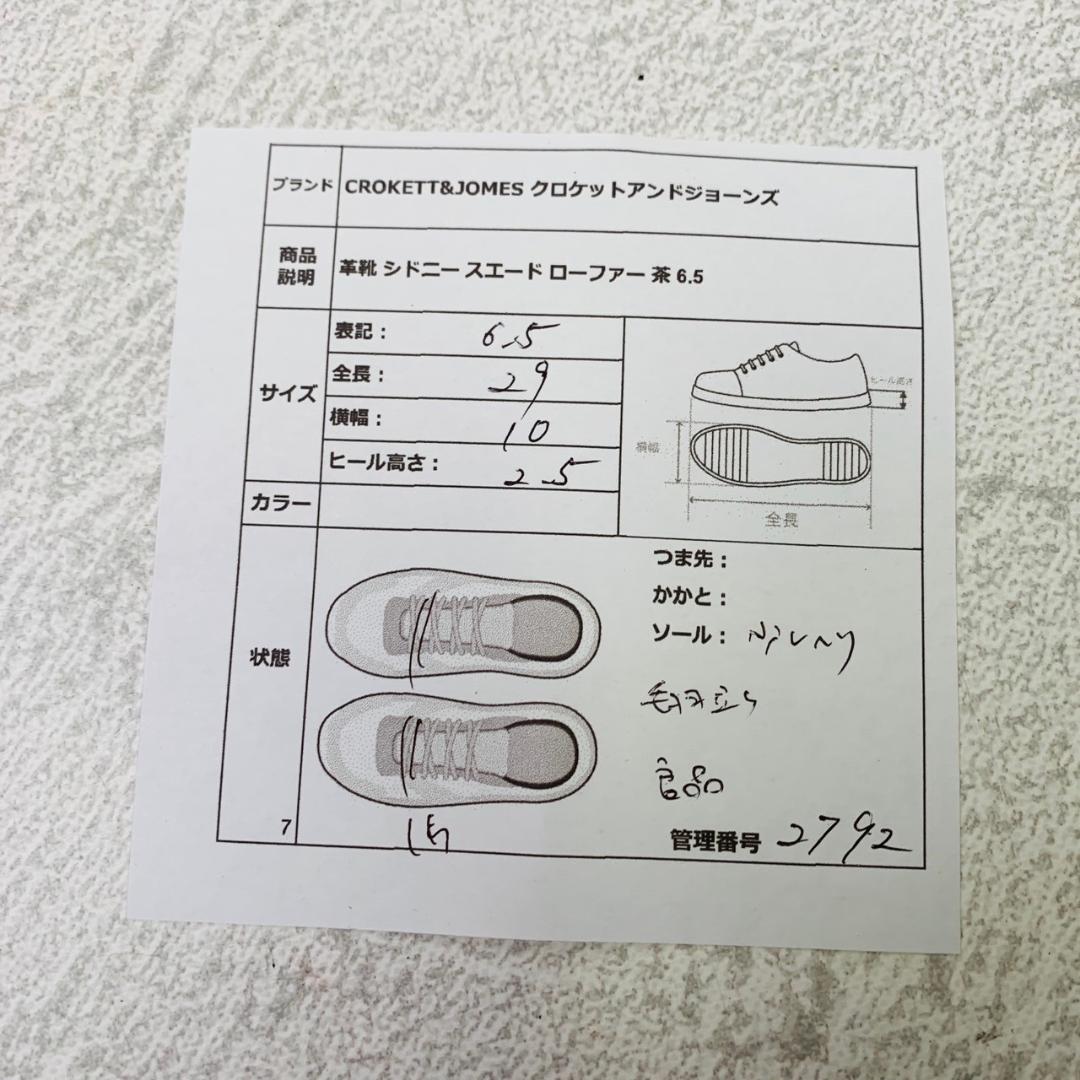 ブランド CROKETT&JOMES クロケットアンドジョーンズ
商品説明 革靴 シドニー スエード ローファー 茶 6.5
サイズ
表記： 6.5
全長： 29
横幅： 10
ヒール高さ： 2.5
ヒール高さ
横幅
全長
カラー
状態
つま先：
かかと：
ソール：
良品
7
管理番号 2792